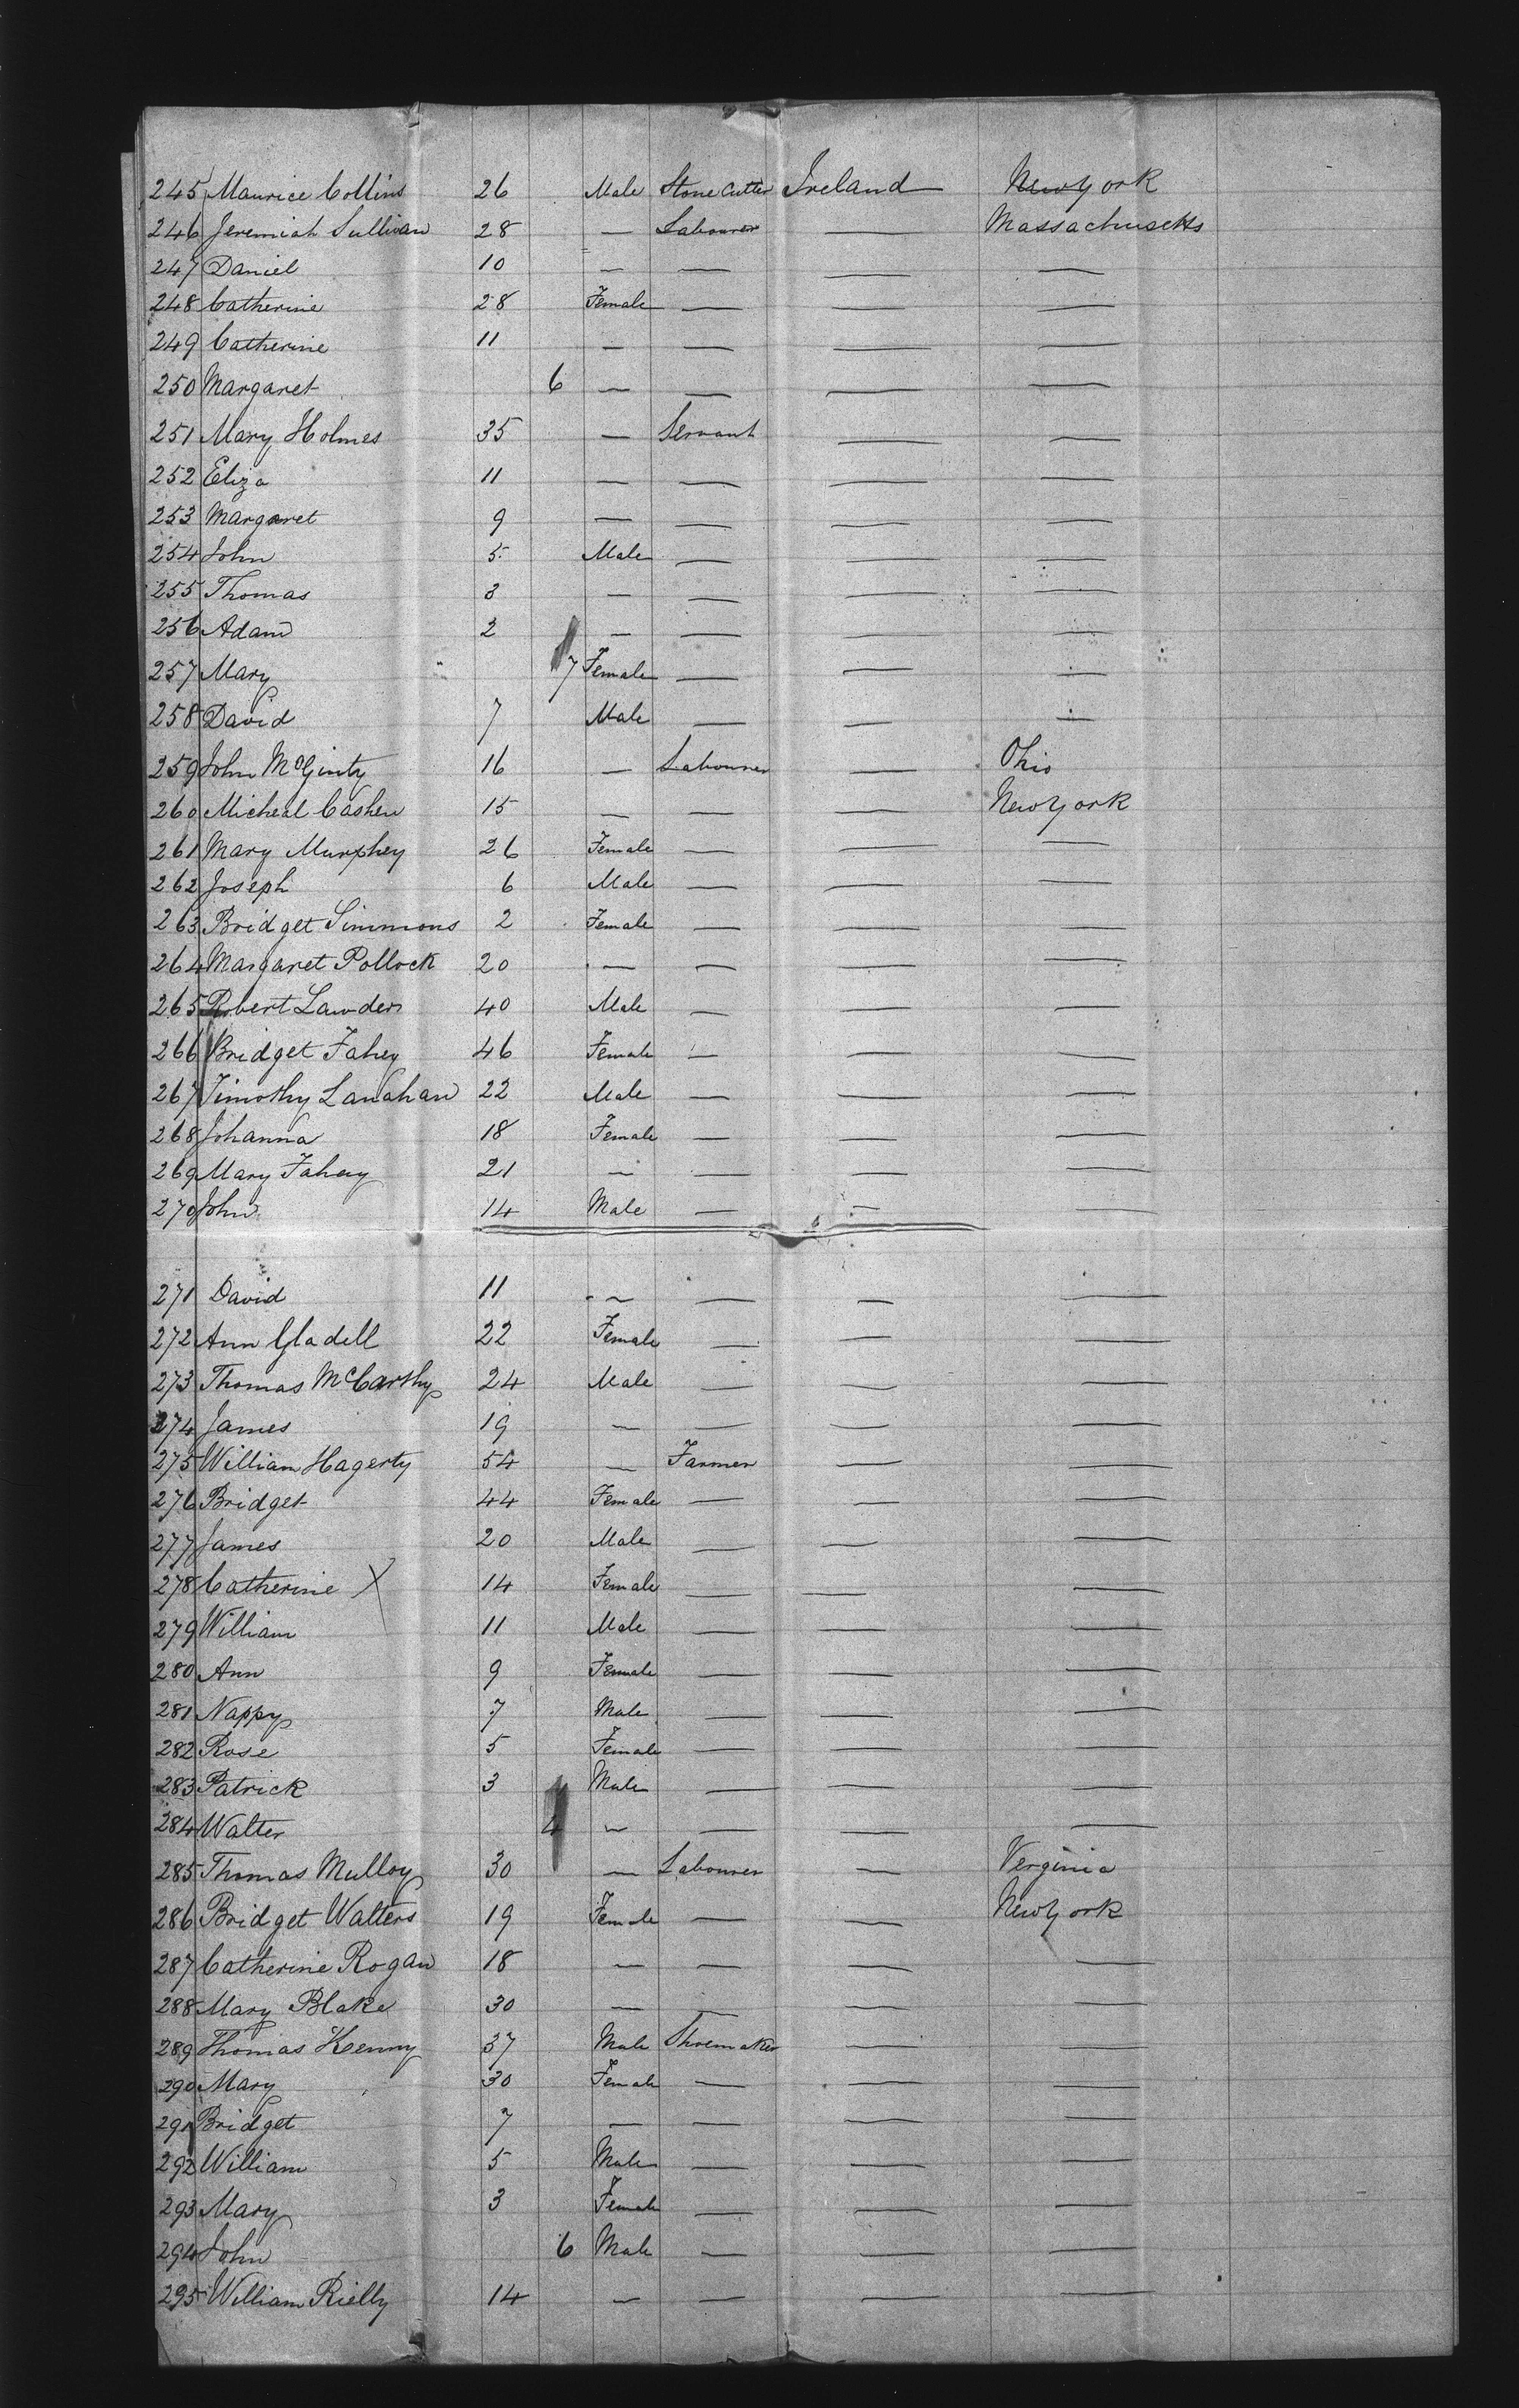 245 Maurice Collins 26 Male Stone Cutter Ireland New York
246 Jeremiah Sullivan 28 — Labourer — Massachusetts
247 Daniel 10 — — — —
248 Catherine 28 Female — — —
249 Catherine 11 — — — —
250 Margaret 6 — — — —
251 Mary Holmes 35 — Servant — —
252 Eliza 11 — — — —
253 Margaret 9 — — — —
254 John 5 Male — — —
255 Thomas 3 — — — —
256 Adam 2 — — — —
257 Mary 7 Female — — —
258 David 7 Male — — —
259 John McGinty 16 — Labourer — Ohio
260 Micheal Cashen 15 — — — New York
261 Mary Murphey 26 Female — — —
262 Joseph 6 Male — — —
263 Bridget Simmons 2 Female — — —
264 Margaret Pollock 20 — — — —
265 Robert Lawder 40 Male — — —
266 Bridget Fahey 46 Female — — —
267 Timothy Lanahan 22 Male — — —
268 Johanna 18 Female — — —
269 Mary Fahey 21 — — — —
270 John 14 Male — — —
271 David 11 — — — —
272 Ann Gladell 22 Female — — —
273 Thomas McCarthy 24 Male — — —
274 James 19 — — — —
275 William Hagerty 54 — Farmer — —
276 Bridget 44 Female — — —
277 James 20 Male — — —
278 Catherine X 14 Female — — —
279 William 11 Male — — —
280 Ann 9 Female — — —
281 Nappy 7 Male — — —
282 Rose 5 Female — — —
283 Patrick 3 Male — — —
284 Walter 4 — — — —
285 Thomas Mulloy 30 — Labourer — Verginia
286 Bridget Walters 19 Female — — New York
287 Catherine Rogan 18 — — — —
288 Mary Blake 30 — — — —
289 Thomas Kenny 37 Male Shoemaker — —
290 Mary 30 Female — — —
291 Bridget 7 — — — —
292 William 5 Male — — —
293 Mary 3 Female — — —
294 John 6 Male — — —
295 William Rielly 14 — — — —